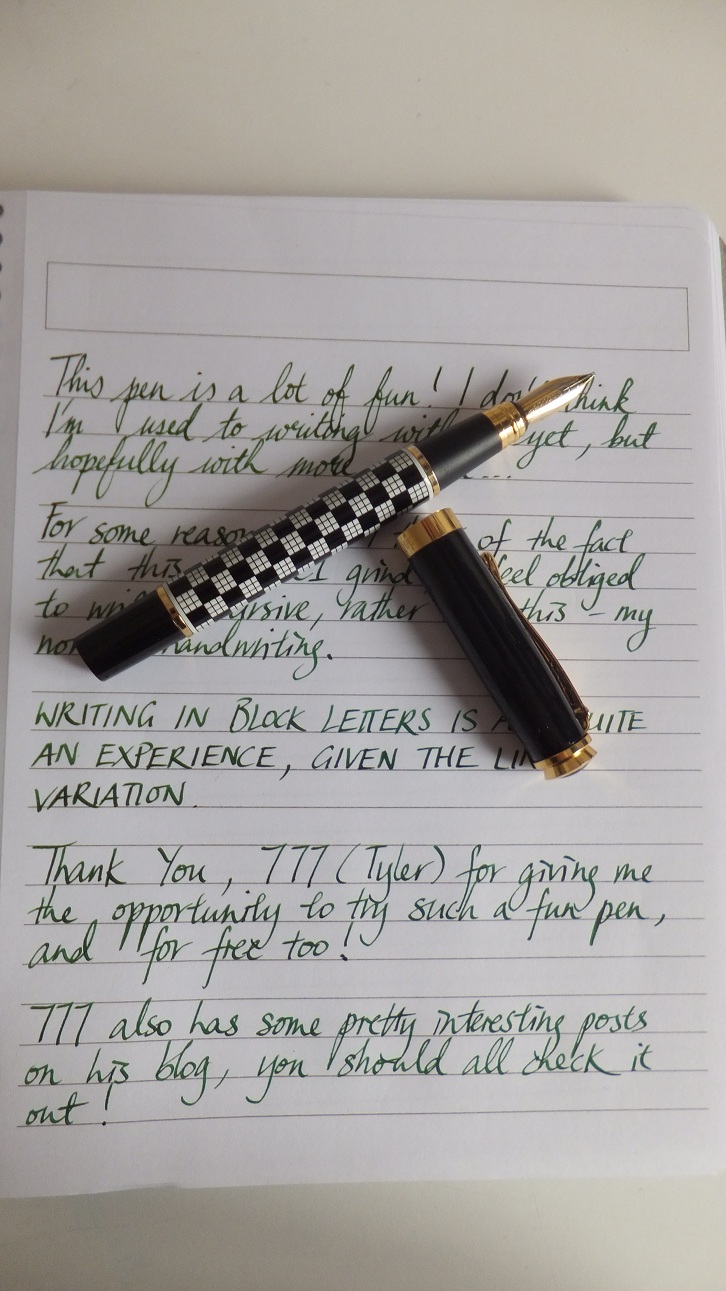 This pen is a lot of fun! I don't think
I'm used to writing with yet, but
hopefully with more ...
For some reason of the fact
that this grind feel obliged
to cursive, rather this - my
handwriting.
WRITING IN BLOCK LETTERS IS
AN EXPERIENCE, GIVEN THE
VARIATION.
Thank You, 777 (Tyler) for giving me
the opportunity to try such a fun pen,
and for free too!
777 also has some pretty interesting posts
on his blog, you should all check it
out!